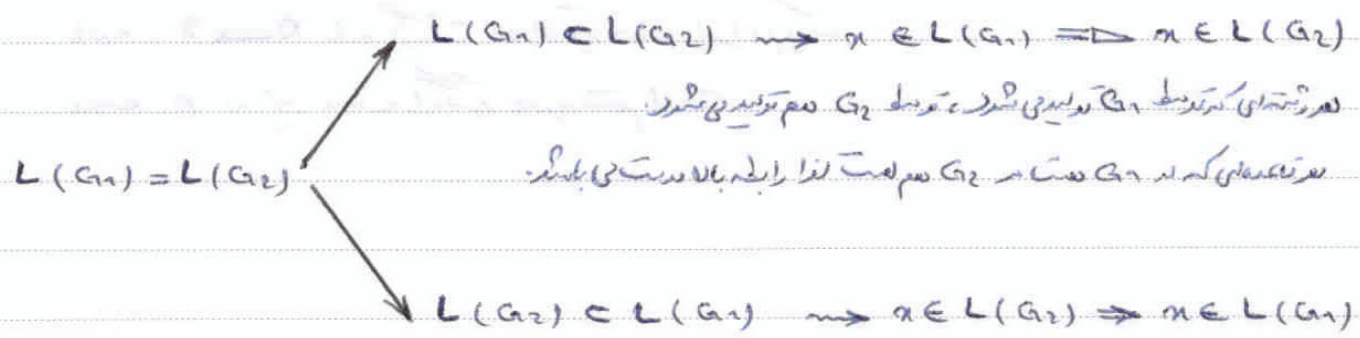 L(G1) ⊂ L(G2) ⇝ x ∈ L(G1) ⇒ x ∈ L(G2)
هر رشته‌ای که توسط G1 تولید می‌شود، توسط G2 هم تولید می‌شود.
L(G1) = L(G2)
هر قاعده‌ای که در G1 هست در G2 هم هست لذا رابطه بالا درست می‌باشد.
L(G2) ⊂ L(G1) ⇝ x ∈ L(G2) ⇒ x ∈ L(G1)